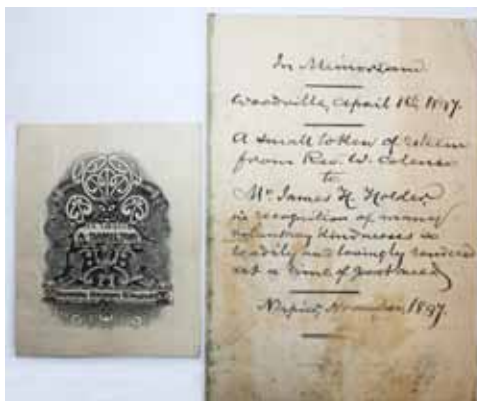 In Memoriam
Woodville, April 1897.
A small token of esteem
from Rev. W. Colenso
to
Mr. James H. Holder
in recognition of many
voluntary kindnesses so
readily and lovingly rendered
at a time of great need
Napier, November, 1897.